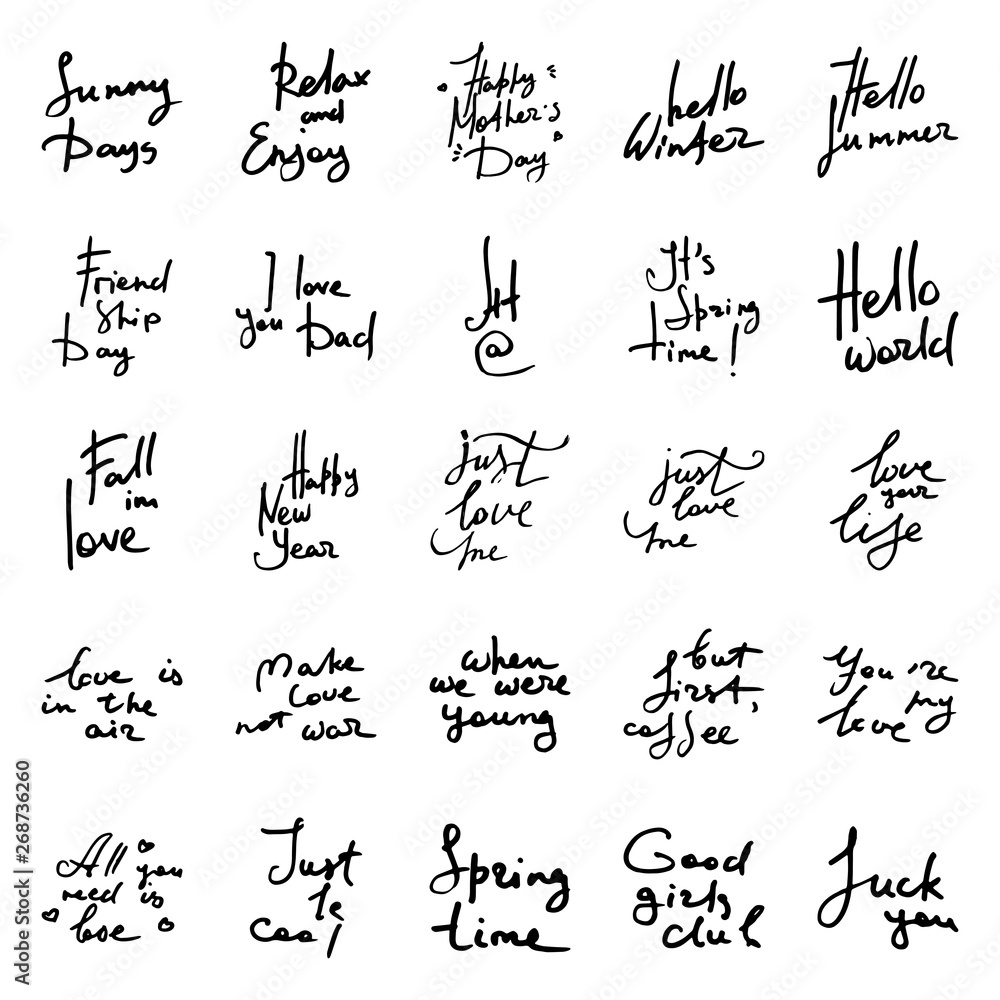 Sunny
Days
Relax
and
Enjoy
Happy
Mother's
Day
hello
Winter
Hello
Summer
Friend
Ship
Day
I love
you Dad
@
It's
Spring
time!
Hello
world
Fall
im
love
Happy
New
Year
just
love
me
just
love
me
love
your
life
love is
in the
air
Make
Love
not war
when
we were
young
but
first,
coffee
You're
my
love
All you
need is
love
Just
be
cool
Spring
time
Good
girls
club
Fuck
you
Adobe Stock | #268736260